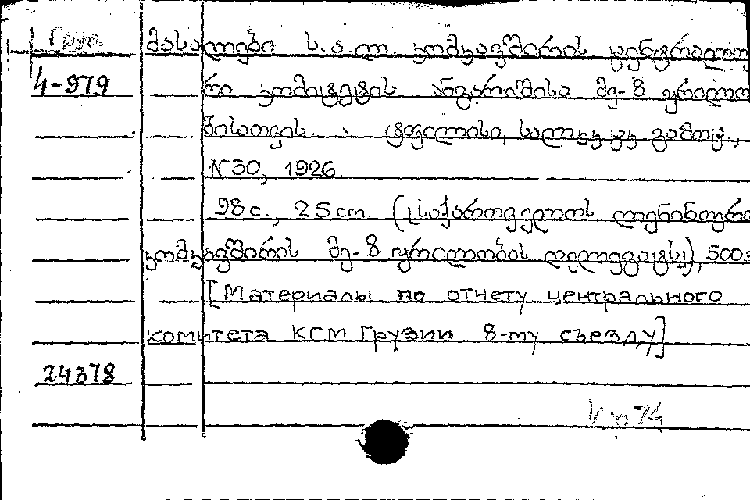 Груз.
მასალები ს.ა.ლ. კომკავშირის ცენტრალუ
4-979
რი კომიტეტის ანგარიშისა მე-8 ყრილო
ბისათვის. ტფილისი, სალკკ ცკ გამოც.,
N 30, 1926.
98 с., 25 cm (საქართველოს ლენინური
კომკავშირის მე-8 ყრილობის დელეგატს), 500э
[Материалы по отчету центрального
комитета КСМ Грузии 8-му съезду]
24378